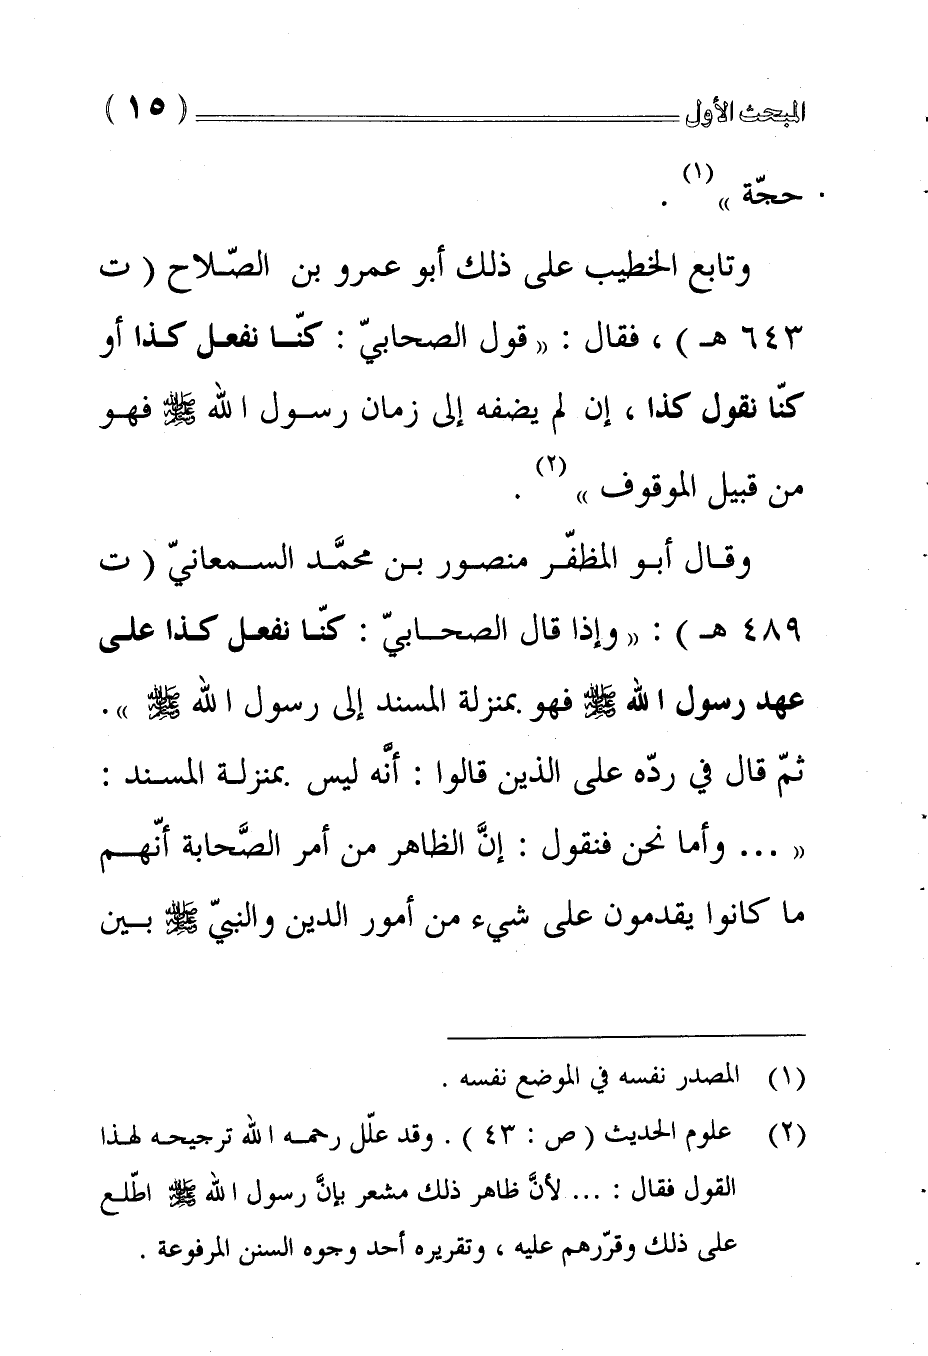 المبحث الأول ( ١٥ )
حجّة » (١) .
وتابع الخطيب على ذلك أبو عمرو بن الصّلاح ( ت
٦٤٣ هـ ) ، فقال : « قول الصحابيّ : كنّـا نفعـل كـذا أو
كنّا نقول كذا ، إن لم يضفه إلى زمان رسـول الله ﷺ فهـو
من قبيل الموقوف » (٢) .
وقـال أبـو المظفّـر منصـور بـن محمَّـد السـمعانيّ ( ت
٤٨٩ هـ ) : « وإذا قال الصحـابيّ : كنّـا نفعـل كـذا علـى
عهد رسول الله ﷺ فهو بمنزلة المسند إلى رسول الله ﷺ ».
ثمّ قال في ردّه على الذين قالوا : أنَّه ليس بمنزلـة المسـند :
« ... وأما نحن فنقول : إنَّ الظاهر من أمر الصَّحابة أنّهـم
ما كانوا يقدمون على شيء من أمور الدين والنبيّ ﷺ بـين
(١) المصدر نفسه في الموضع نفسه .
(٢) علوم الحديث ( ص : ٤٣ ) . وقد علّل رحمـه الله ترجيحـه لهـذا
القول فقال : ... لأنَّ ظاهر ذلك مشعر بإنَّ رسول الله ﷺ اطّلـع
على ذلك وقرّرهم عليه ، وتقريره أحد وجوه السنن المرفوعة .